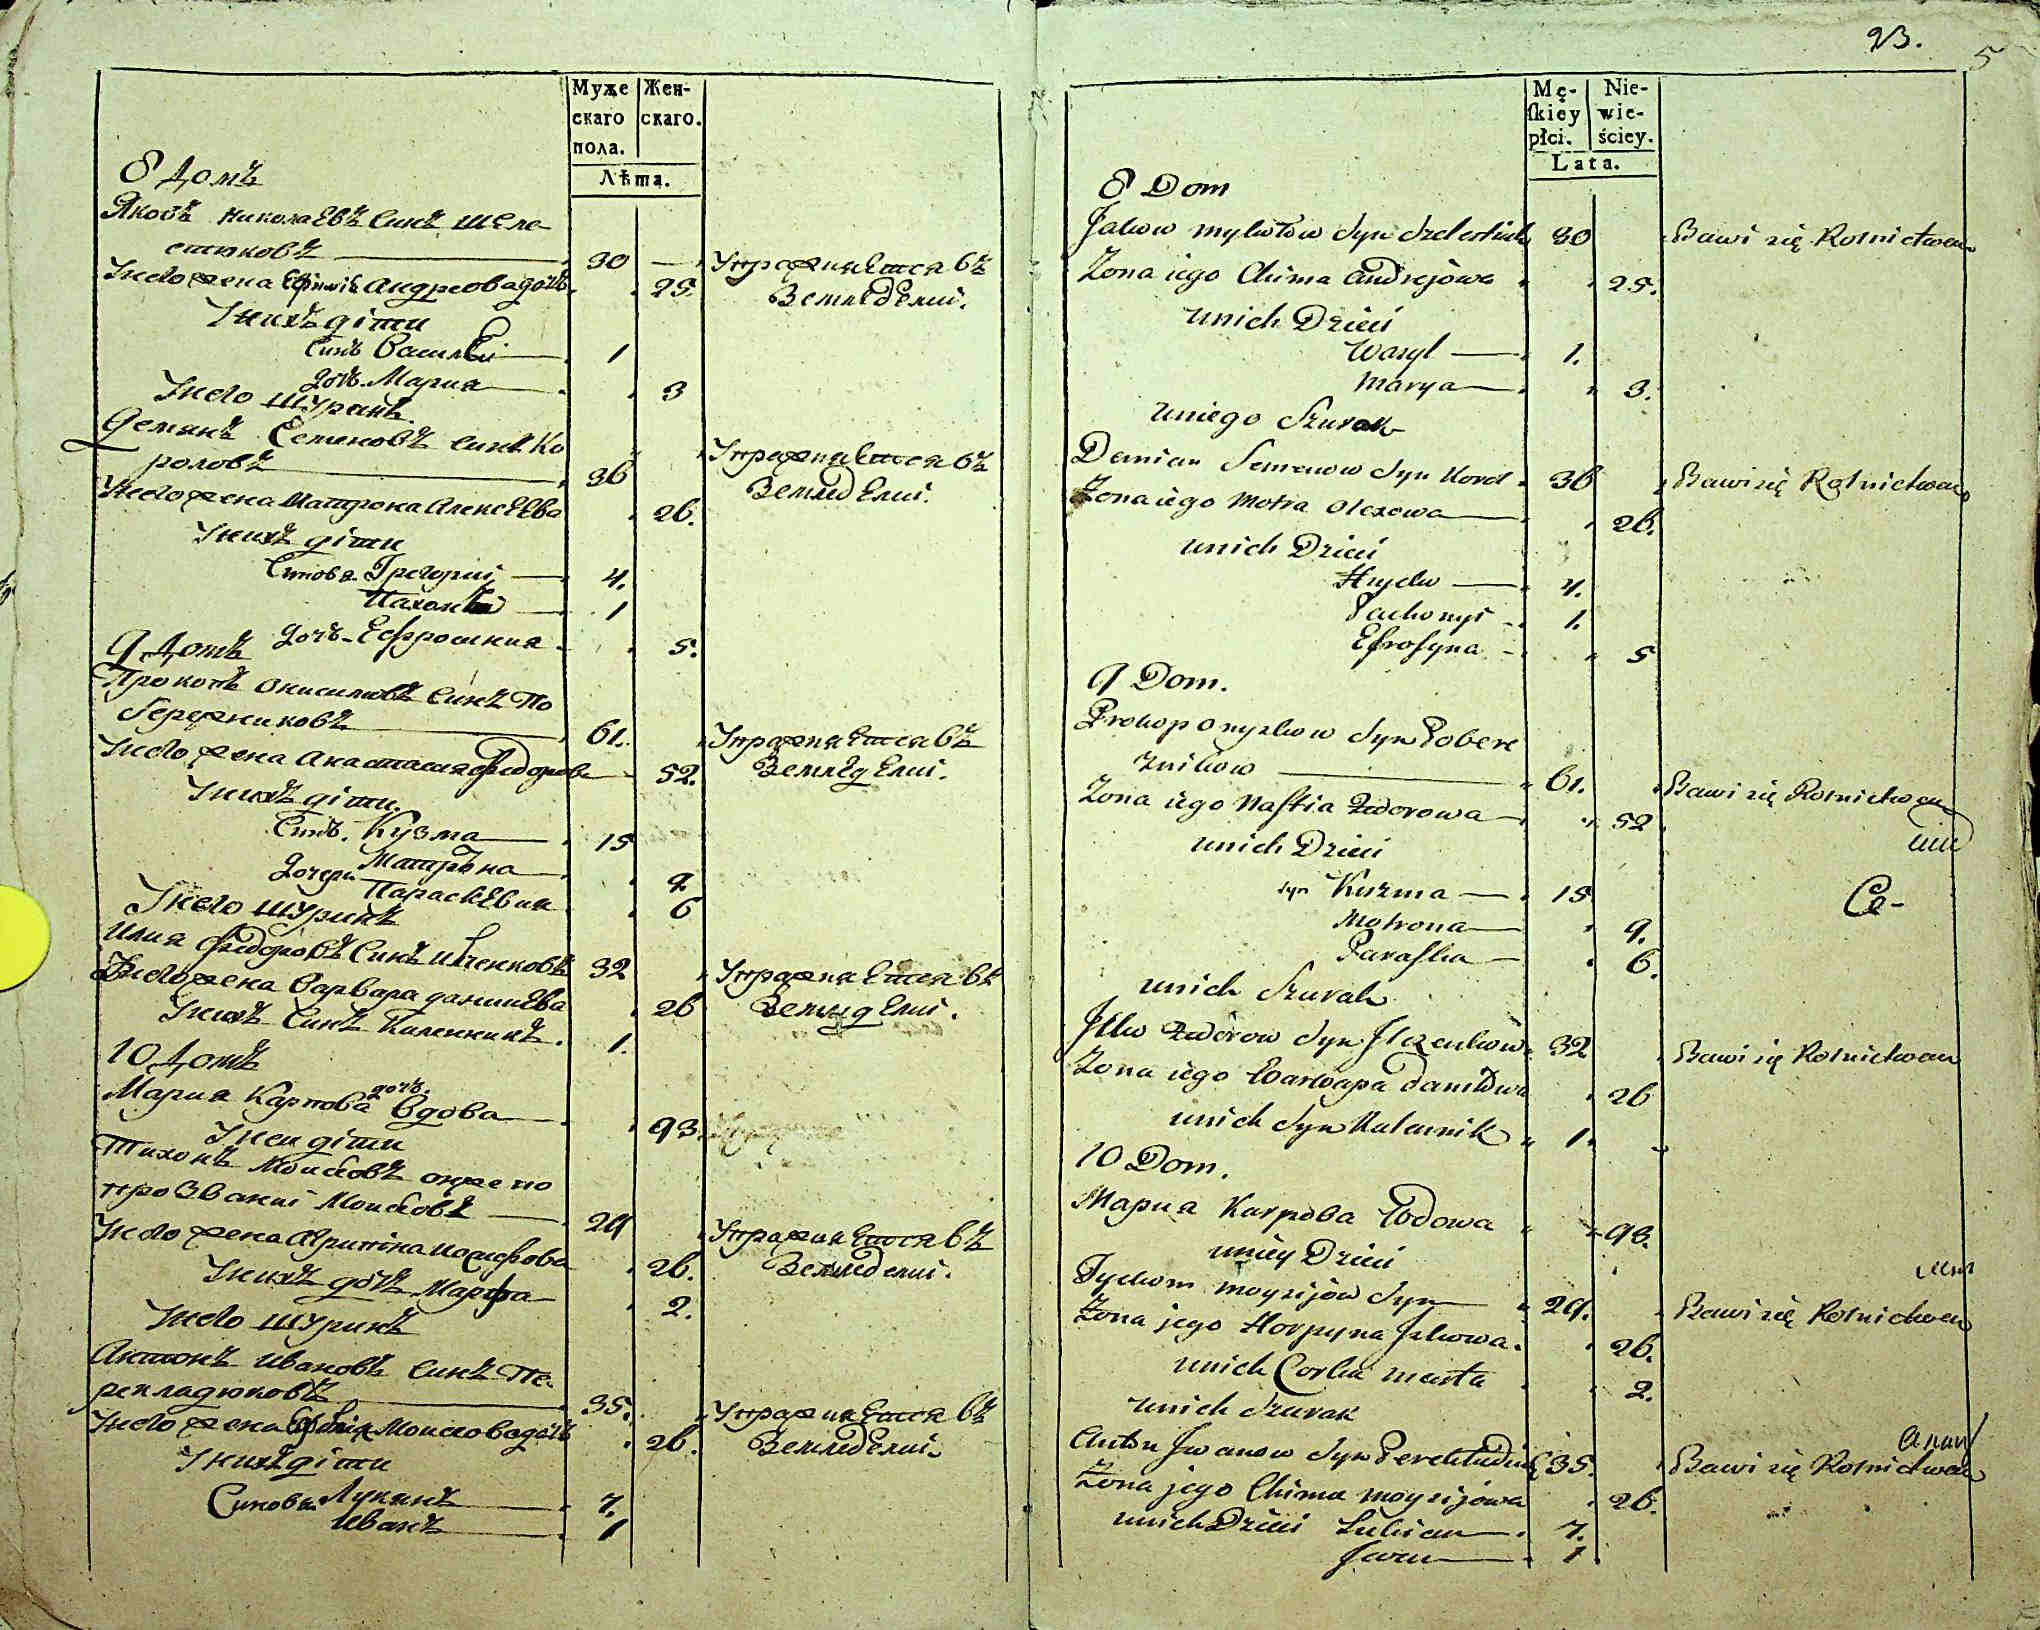 Муже
скаго
пола.
Жен-
скаго.
Лѣта.
8 Домъ
Якобъ Николаевъ Синъ Шеле
стюковъ 30
Упражняется въ
Его жена Ефимія Андреова дочь 25.
Земледелii.
Уних дiти
Синъ Василей 1
дочь Мария 3
У него Шуринъ
Демянъ Семеновъ Синъ Ко
роловъ 36
Упражняется въ
Его жена Матрона Алексеева 26.
Земледелii.
Унихъ дiти
Синова Григорий 4.
Пахомей 1
дочь Ефросиния 5.
9 Домъ
Прокопъ Онисимовъ Синъ По
бережниковъ 61.
Упражняется въ
Его жена Анастасия Федорова 52.
Земледелii.
Унихъ дiти
Синъ Кузма 15
дочери Матрона 9
Параскевия 6
У него шуринъ
Илия Федоровъ Синъ Илченковъ 32
Упражняется въ
Его жена Варвара Данилева 26
Земледелii.
Унихъ Синъ Калениикъ. 1.
10 Домъ
Мария Карпова дочь Вдова 93.
У неи дiти
Тихонъ Моисеовъ онже по
прозванii Моисеовъ 29
Упражняется въ
Его жена Агрипина Иосифова 26.
Земледелii.
Унихъ дочь Марфа 2.
У него шуринъ
Антонъ Ивановъ Синъ Пе-
рекладюковъ 35.
Упражняется въ
Его жена Моисеова дочь 26.
Земледелii.
Унихъ дiти
Синова Лукянъ 7.
Иванъ 1
23.
5
Mę-
ſkiey
płci.
Nie-
wie-
ściey.
Lata.
8 Dom
Jakow Mykołow Syn Szelestiuk 30 Bawi się Rolnictwem
Żona iego Chima Andrejowa 25.
unich Dzieci
Wasyl 1.
Marya 3.
uniego Szurak
Demian Semenow Syn Korol 36 Bawi się Rolnictwem
Żona iego Motra Olexowa 26.
unich Dzieci
Hryćko 4.
Pachomyi 1.
Efrosyna 5
9 Dom.
Prokop Onyszkow Syn Pobere
żnikow 61. Bawi się Rolnictwem
Żona iego Nastia Fedorowa 52
unich Dzieci
syn Kuzma 15
Ce-
Motrona 9.
Paraska 6.
unich Szurak
Ilko Fedorow Syn Ilczenkow 32 Bawi się Rolnictwem
Żona iego Warwара Daniłowa 26
unich Syn Kalennik 1.
10 Dom.
Мариа Karpowa Wdowa 93.
uniey Dzieci
Tychom Moysijow Syn 29. Bawi się Rolnictwem
Żona jego Horpyna Jzkowa. 26.
unich Corka Marta 2.
unich Szurak
Anton Jwanow Syn Perekładiuk 35. Bawi się Rolnictwem
Żona jego Chima Moysijowa 26.
unich Dzieci Łukian 7.
Jwan 1